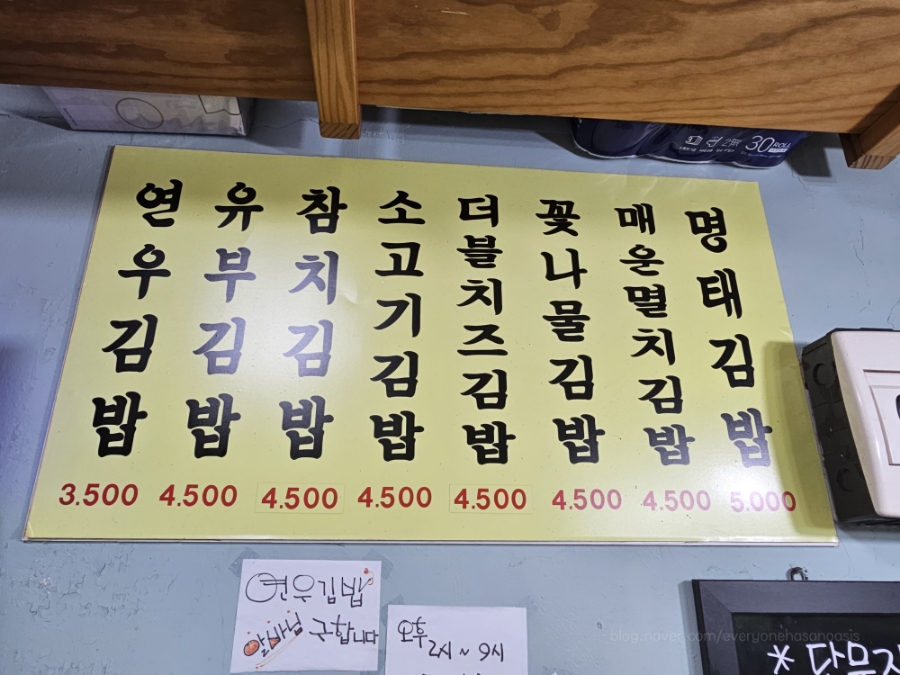 30 ROLL
연우김밥
유부김밥
참치김밥
소고기김밥
더블치즈김밥
꽃나물김밥
매운멸치김밥
명태김밥
3.500 4.500 4.500 4.500 4.500 4.500 4.500 5.000
연우김밥
알바님 구합니다
오후
2시 ~ 9시
blog.naver.com/everyonehasanoasis
* 단무지